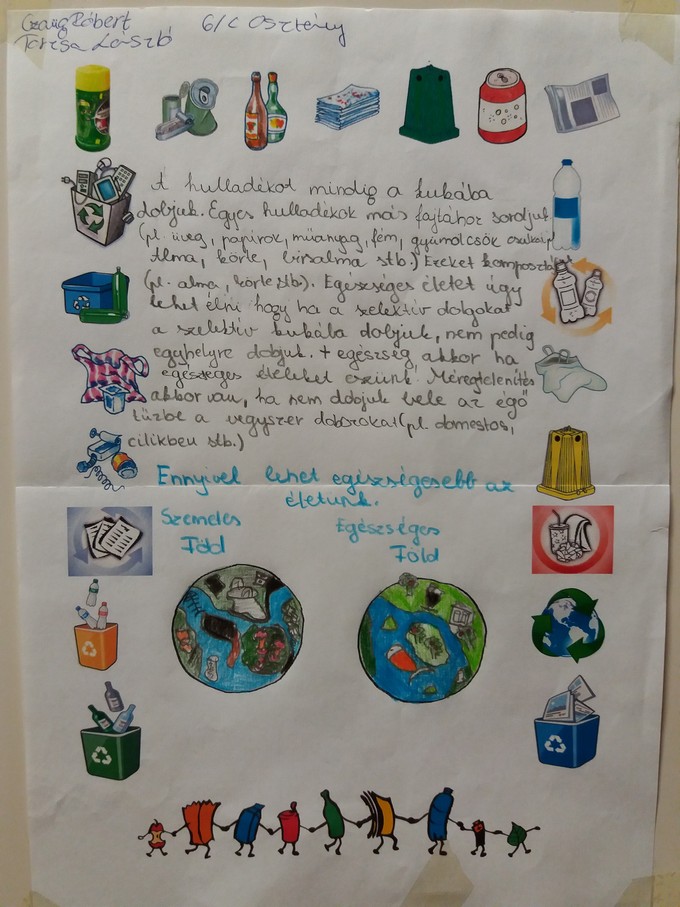 Czang Róbert 6/c Osztény
Torzsa László
A hulladékot mindig a kukába
dobjuk. Egyes hulladékok más fajtához soroljuk
(pl. üveg, papírok, műanyag, fém, gyümölcsök csutkái pl
alma, körte, birsalma stb.) Ezeket komposztál
(pl. alma, körte stb.). Egészséges életet úgy
lehet élni hogy ha a szelektív dolgokat
a szelektív kukába dobjuk, nem pedig
egyhelyre dobjuk. + egészség akkor ha
egészséges ételeket eszünk. Méregtelenítés
akkor van, ha nem dobjuk bele az égő
tűzbe a vegyszer dobozokat (pl. domestos,
cilikben stb.)
Ennyivel lehet egészségesebb az
életünk.
Szemetes Egészséges
Föld Föld